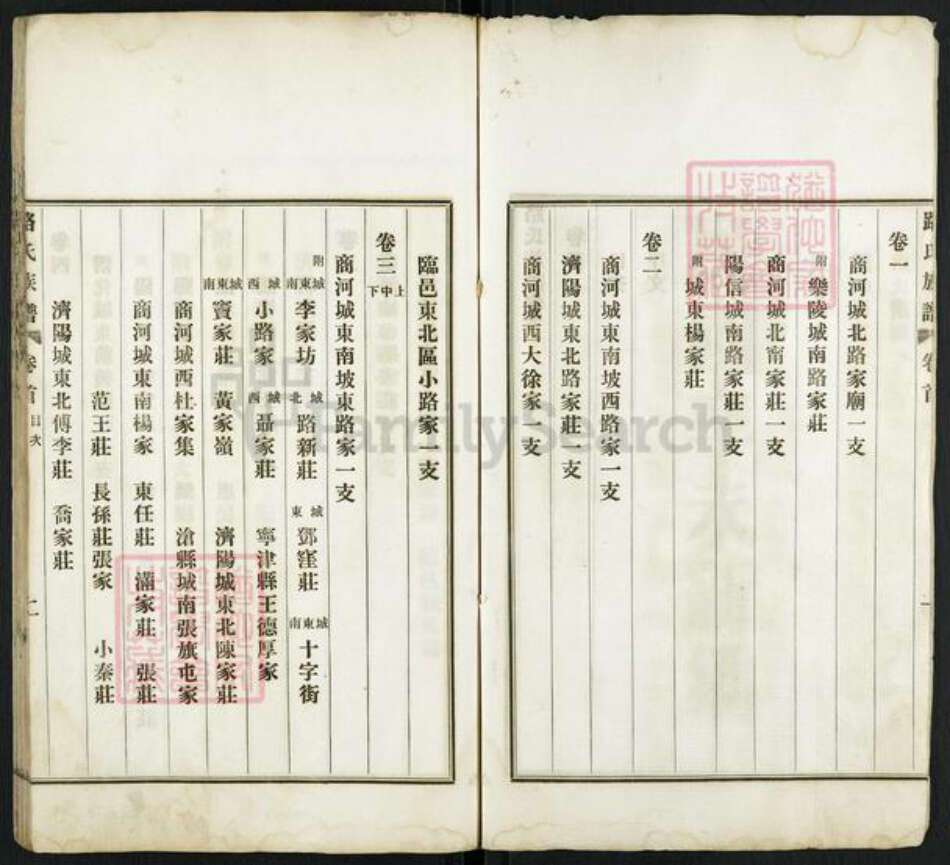 路氏族譜 卷首 一
卷一
商河城北路家廟一支
附 樂陵城南路家莊
商河城北甯家一支
陽信城南路家莊一支
附 城東楊家莊
卷二
商河城東南坡西路家一支
濟陽城東北路家莊一支
商河城西大徐家一支
臨邑東北區小路家一支
卷三 上中下
商河城東南坡東路家一支
附 城東南 李家坊 城北 路新莊 城東 鄧窪莊 城東南 十字街
城西 小路家 城西 聶家莊 寧津縣王德厚家
城東南 竇家莊 黃家嶺 濟陽城東北陳家莊
商河城西杜家集 滄縣城南張旗屯家
商河城東南楊家 東任莊 滿家莊 張莊
范王莊 長孫莊張家 小秦莊
濟陽城東北傅李莊 喬家莊
路氏族譜 卷首 目次 二
FamilySearch